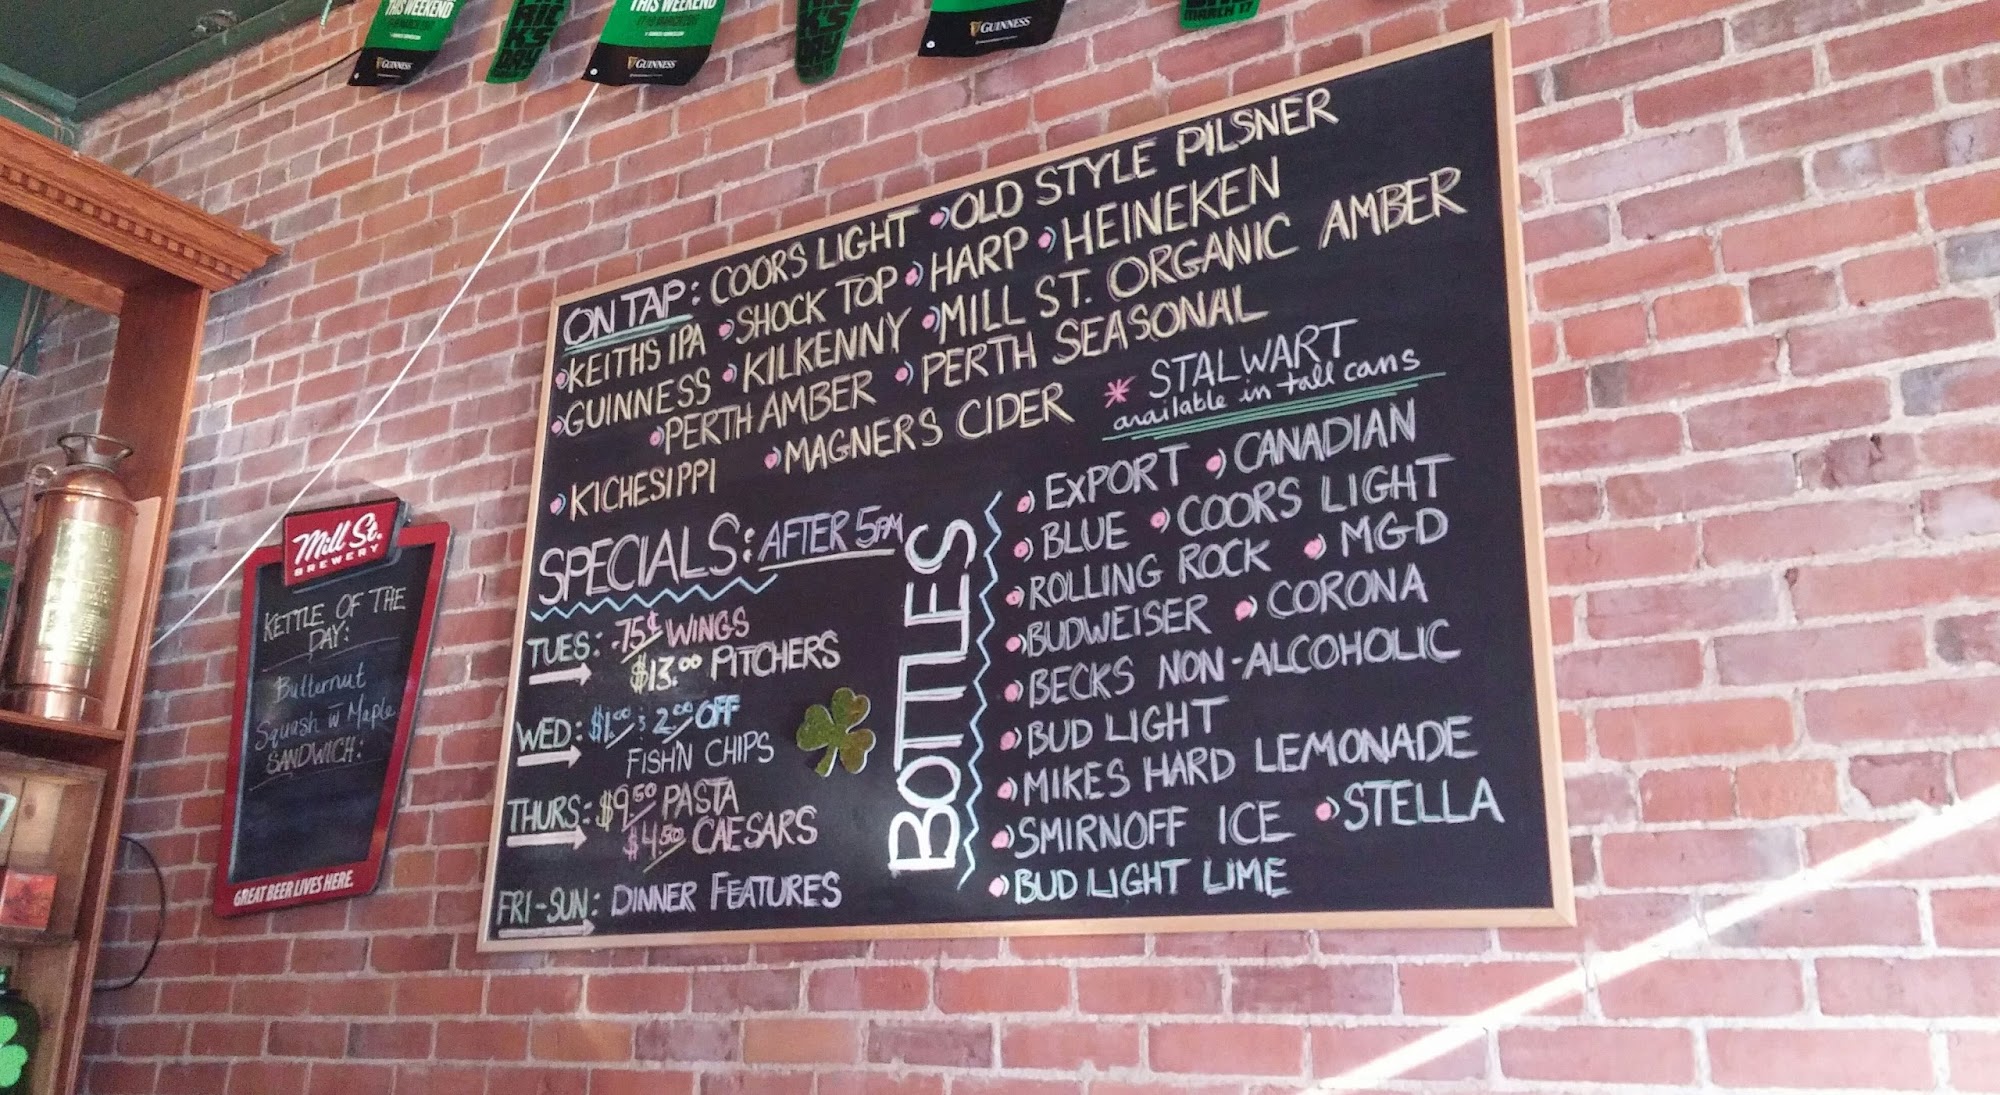 THIS WEEKEND
GUINNESS
THIS WEEKEND
GUINNESS
GUINNESS
MARCH 17
ON TAP: COORS LIGHT OLD STYLE PILSNER
KEITHS IPA SHOCK TOP HARP HEINEKEN
GUINNESS KILKENNY MILL ST. ORGANIC AMBER
PERTH AMBER PERTH SEASONAL
KICHESIPPI MAGNERS CIDER
* STALWART
available in tall cans
SPECIALS: AFTER 5PM
TUES: .75¢ WINGS
$13.00 PITCHERS
WED: $1.00 : 2.00 OFF
FISH'N CHIPS
THURS: $9.50 PASTA
$4.50 CAESARS
FRI-SUN: DINNER FEATURES
BOTTLES
EXPORT CANADIAN
BLUE COORS LIGHT
ROLLING ROCK MGD
BUDWEISER CORONA
BECKS NON-ALCOHOLIC
BUD LIGHT
MIKES HARD LEMONADE
SMIRNOFF ICE STELLA
BUD LIGHT LIME
Mill St.
BREWERY
KETTLE OF THE
DAY:
Butternut
Squash w Maple
SANDWICH:
GREAT BEER LIVES HERE.